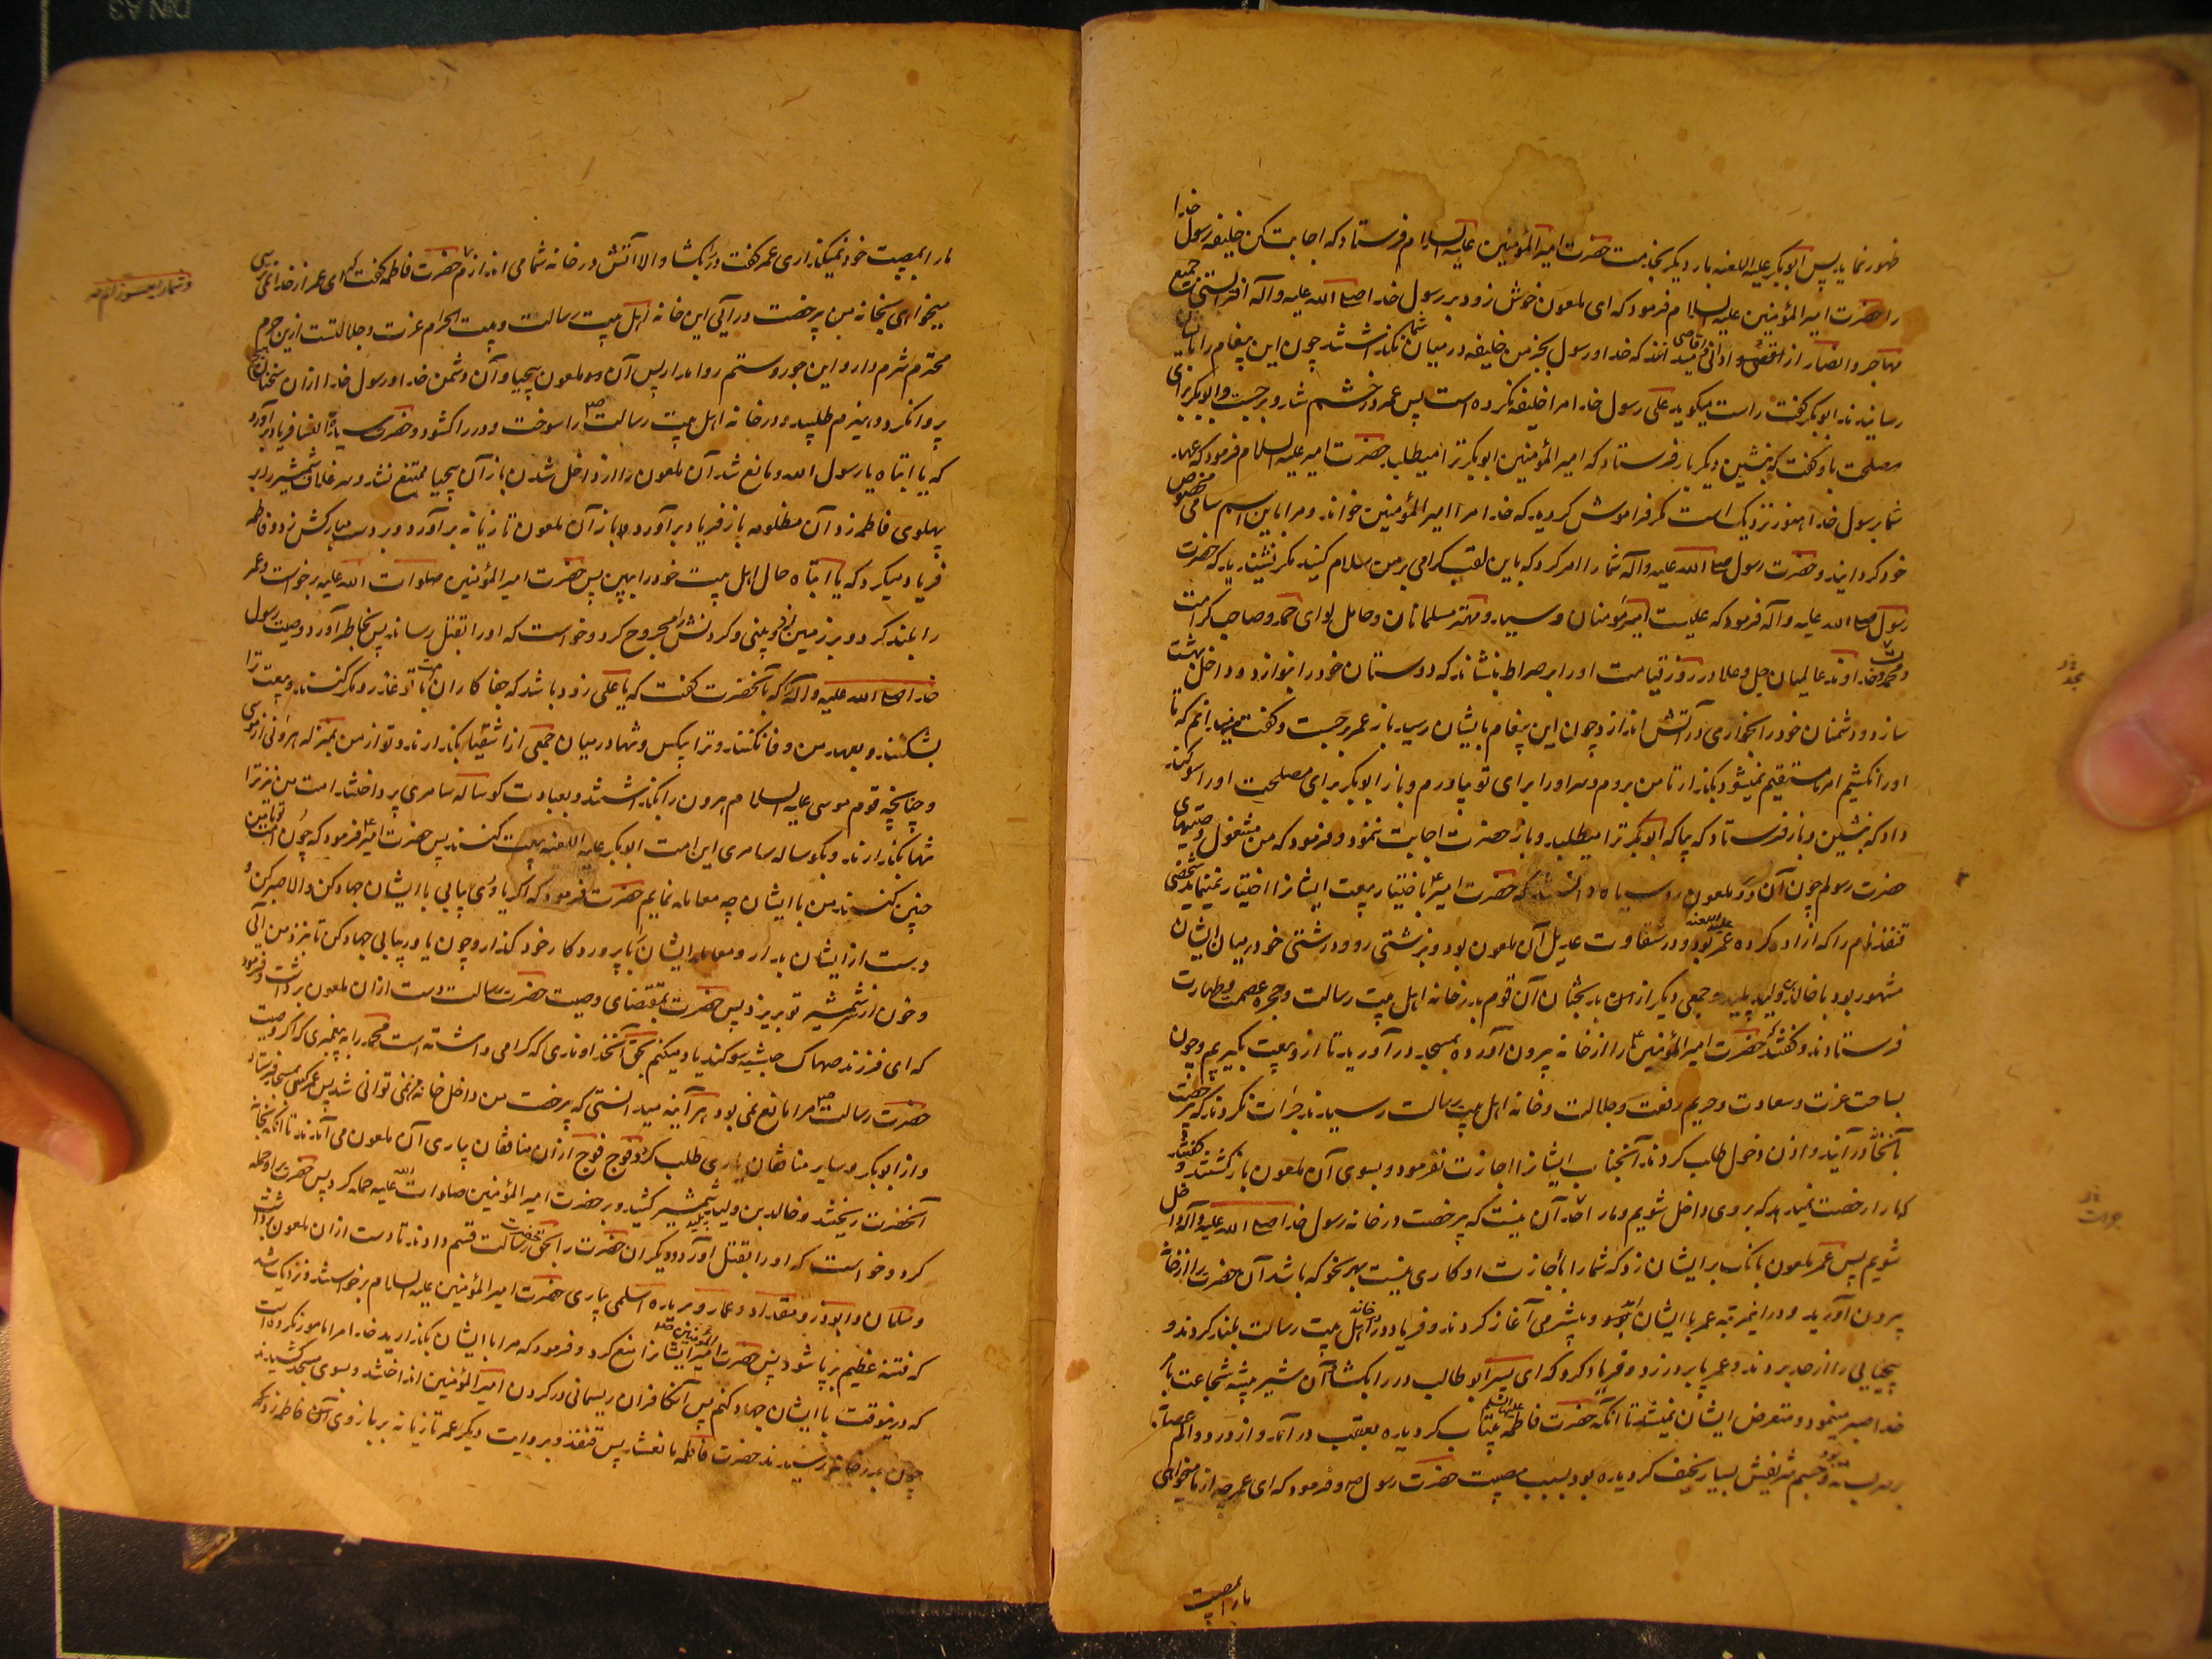 ظهور نماید پس ابوبکر علیه اللعنه بار دیگر بخدمت حضرت امیر المؤمنین علیه السلام فرستاد که اجابت کن خلیفه رسول خدا
را حضرت امیر المؤمنین علیه السلام فرمود که ای ملعون خوش زود بر رسول خدا صلی الله علیه وآله افترا بستی جمیع
مهاجر و انصار از اقصی و ادانی میدانند که خدا و رسول بجز من خلیفه در میان شما نگذاشتند چون این پیغام را بان
رسانیدند ابوبکر گفت راست میگوید علی رسول خدا مرا خلیفه نکرده است پس عمر در خشم شد و برجست و ابوبکر برای
مصلحت باو گفت که بنشین دیگر بار فرستاد که امیر المؤمنین ابوبکر ترا میطلبد حضرت امیر علیه السلام فرمود که عهد
شما برسول خدا هنوز نزدیک است مگر فراموش کردید که خدا مرا امیر المؤمنین خواند و مرا باین اسم سامی مخصوص
خود گردانید و حضرت رسول صلی الله علیه وآله شما را امر کرد که باین لقب گرامی بر من سلام کنید مگر نشنیدید که حضرت
رسول صلی الله علیه وآله فرمود که علیست امیر مؤمنان و سید و مهتر مسلمانان و حامل لوای حمد و صاحب کرامت
و مجد و خداوند عالمیان جل وعلا در روز قیامت او را بر صراط بنشاند که دوستان خود را بنوازد و داخل بهشت
سازد و دشمنان خود را بخواری در آتش اندازد چون این پیغام بایشان رسید باز عمر برجست و گفت میدانم که تا
او را نکشیم امر ما مستقیم نمیشود بگذار تا من بروم و سر او را برای تو بیاورم و باز ابوبکر برای مصلحت او را سوگند
داد که بنشین و باز فرستاد که بیا که ابوبکر ترا میطلبد و باز حضرت اجابت ننمود و فرمود که من مشغول وصیتهای
حضرت رسولم چون آن دو ملعون روسیاه دانستند که حضرت امیر باختیار بیعت ایشانرا اختیار نمینماید شخصی
قنفذ نام را که آزاد کرده عمر علیه اللعنه بود و در شقاوت عدیل آن ملعون بود و بزشتی رو و درشتی خو در میان ایشان
مشهور بود با خالد بن ولید پلید و جمعی دیگر از آن بدبختان آن قوم بدر خانه اهل بیت رسالت و حجره عصمت و طهارت
فرستادند و گفتند که حضرت امیر المؤمنین را از خانه بیرون آورده بمسجد در آورید تا از و بیعت بگیریم و چون
بساحت عزت و سعادت و حریم رفعت و جلالت و خانه اهل بیت رسالت رسیدند جرات نکردند که بیرخصت
بآنخانه درآیند و اذن دخول طلب کردند آنجناب ایشانرا اجازت نفرمود و بسوی آن ملعون بازگشتند و گفتند
که ما را رخصت نمیدهد که بروی داخل شویم و ما را حد آن نیست که بیرخصت در خانه رسول خدا صلی الله علیه وآله داخل
شویم پس عمر ملعون بانک بر ایشان زد که شما را باجازت او کاری نیست بهر نحو که باشد آن حضرت را از خانه
بیرون آورید و در اینمرتبه عمر با ایشان آمد و بیشرمی آغاز کردند و فریاد در در خانه اهل بیت رسالت بلند کردند و
بیحیایی را از حد بردند و عمر پا بر در زد و فریاد کرد که ای پسر ابو طالب در را بکشا آن شیر بیشه شجاعت بامر
خدا صبر مینمود و متعرض ایشان نمیشد تا آنکه حضرت فاطمه علیها السلام بیتاب گردیده بعقب در آمد و از درد و الم عصابه
بر سر بسته بود و جسم شریفش بسیار نحیف گردیده بود بسبب مصیبت حضرت رسول و فرمود که ای عمر چه از ما میخواهی
ما را بمصیبت
ما را بمصیبت خود نمیگذاری عمر گفت در را بکشا والا آتش در خانه شما می اندازم حضرت فاطمه گفت که ای عمر از خدا نمیترسی
میخواهی بخانه من بیرخصت درآیی این خانه اهل بیت رسالت و بیت الحرام عزت و جلالتست ازین حرم
محترم شرم دار و این جور و ستم روا مدار پس آن دو ملعون بیحیا و آن دشمن خدا و رسول خدا ازان سخنان
پروا نکرد و هیزم طلبید و در خانه اهل بیت رسالت را سوخت و در را کشود و حضرت سیدة النسا فریاد برآورد
که یا ابتاه یا رسول الله و مانع شد آن ملعون را از داخل شدن باز آن بیحیا ممتنع نشد و سر غلاف شمشیر را بر
پهلوی فاطمه زد آن مظلومه باز فریاد برآورد و باز آن ملعون تازیانه برآورد و بر دست مبارکش زد و فاطمه
فریاد میکرد که یا ابتاه حال اهل بیت خود را ببین پس حضرت امیر المؤمنین صلوات الله علیه برخواست و عمر
را بلند کرد و بر زمین زد و بینی و گردنش را مجروح کرد و خواست که او را بقتل رساند پس بخاطر آورد وصیت رسول
خدا صلی الله علیه وآله را که آنحضرت گفت که یا علی زود باشد که جفاکاران امت با تو غدر و مکر کنند و بیعت ترا
بشکنند و بعهد من وفا نکنند و ترا بیکس و تنها در میان جمعی از اشقیا بگذارند و تو از من بمنزله هرونی از موسی
و چنانچه قوم موسی علیه السلام هرون را بگذاشتند و بعبادت گوساله سامری پرداختند امت من نیز ترا
تنها بگذارند و بگوساله سامری این امت ابوبکر علیه اللعنه بیعت کنند پس حضرت امیر فرمود که چون امت تو با من
چنین کنند من با ایشان چه معامله نمایم حضرت فرمود که اگر یاوری بیابی با ایشان جهاد کن والا صبر کن و
دست از ایشان بدار و معامله ایشان با پروردگار خود گذار و چون یاور بیابی جهاد کن تا بنزد من آئی
و خون از شمشیر تو بریزد پس حضرت بمقتضای وصیت حضرت رسالت دست ازان ملعون برداشت و فرمود
که ای فرزند صهاک حبشیه سوگند یاد میکنم بحق آنخداوندی که گرامی داشته است محمد را به پیغمبری که اگر وصیت
حضرت رسالت مرا مانع نمی بود هر آینه میدانستی که بیرخصت من داخل خانه من نمی توانی شد پس عمر کسی بمسجد فرستاد
و از ابوبکر و سایر منافقان یاری طلب کرد و فوج فوج ازان منافقان بیاری آن ملعون می آمدند تا آنکه بخانه
آنحضرت ریختند و خالد بن ولید پلید شمشیر کشید و بر حضرت امیر المؤمنین صلوات الله علیه حمله کرد پس حضرت بر او حمله
کرد و خواست که او را بقتل آورد و دیگران حضرت را بحق حضرت رسالت قسم دادند تا دست ازان ملعون برداشت
و سلمان و ابوذر و مقداد و عمار و بریده اسلمی بیاری حضرت امیر المؤمنین علیه السلام برخواستند و نزدیک شد
که فتنه عظیم برپا شود پس حضرت امیر المؤمنین ایشانرا منع کرد و فرمود که مرا با ایشان بگذارید خدا مرا مامور نکرده است
که درینوقت با ایشان جهاد کنم پس آنکافران ریسمانی در گردن امیر المؤمنین انداختند و بسوی مسجد کشیدند
چون بدر خانه رسیدند حضرت فاطمه مانع شد پس قنفذ و بروایت دیگر عمر تازیانه بر بازوی آن فاطمه زد که